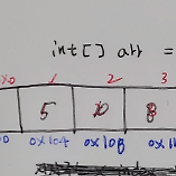 int[] arr =
1 2 3
5 10 8
0x104 0x108